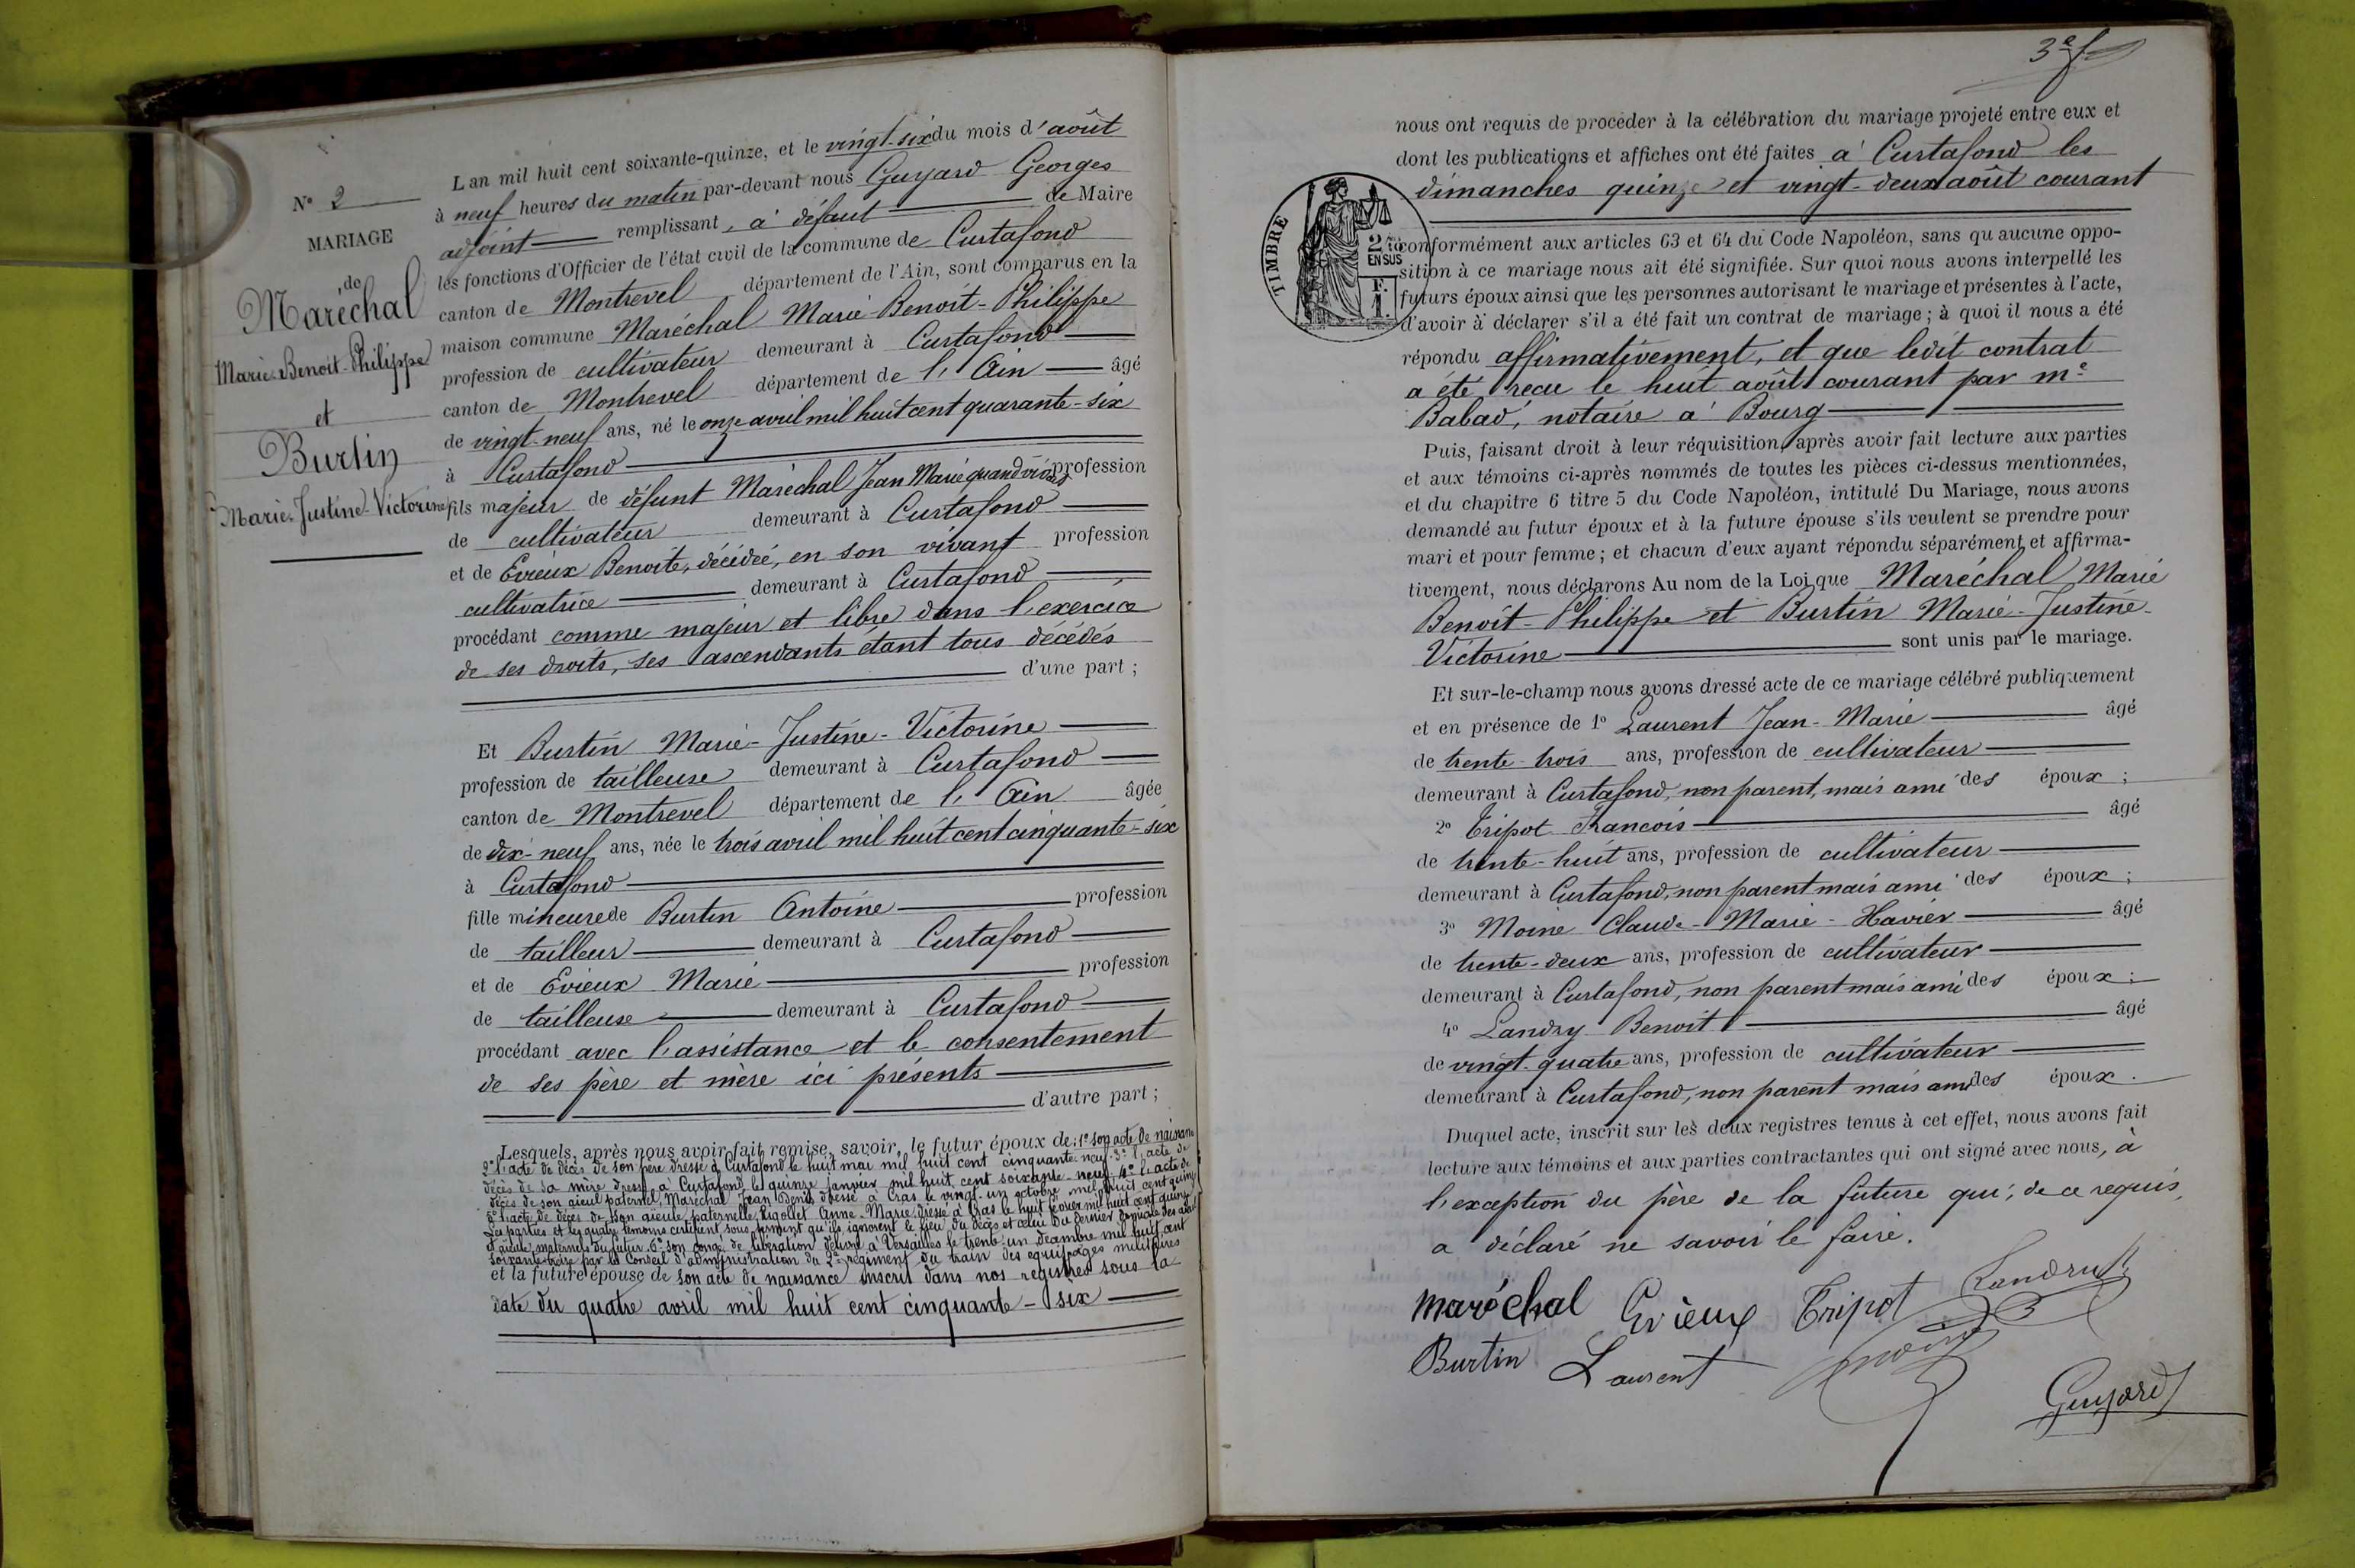 N° 2
MARIAGE
de
Maréchal
Marie-Benoit-Philippe
et
Burtin
Marie-Justine-Victorine
L an mil huit cent soixante-quinze, et le vingt-six du mois d'août
à neuf heures du matin par-devant nous Guyard Georges
adjoint remplissant, à défaut de Maire
les fonctions d'Officier de l'état civil de la commune de Curtafond
canton de Montrevel département de l'Ain, sont comparus en la
maison commune Maréchal Marie-Benoit-Philippe
profession de cultivateur demeurant à Curtafond
canton de Montrevel département de l'Ain âgé
de vingt-neuf ans, né le onze avril mil huit cent quarante-six
à Curtafond
fils majeur de défunt Maréchal Jean Marie quand vivait profession
de cultivateur demeurant à Curtafond
et de Evieux Benoite, décédée, en son vivant profession
cultivatrice demeurant à Curtafond
procédant comme majeur et libre dans l'exercice
de ses droits, ses ascendants étant tous décédés
d'une part ;
Et Burtin Marie-Justine-Victorine
profession de tailleuse demeurant à Curtafond
canton de Montrevel département de l'Ain âgée
de dix-neuf ans, née le trois avril mil huit cent cinquante-six
à Curtafond
fille mineure de Burtin Antoine profession
de tailleur demeurant à Curtafond
et de Evieux Marie profession
de tailleuse demeurant à Curtafond
procédant avec l'assistance et le consentement
de ses père et mère ici présents
d'autre part ;
Lesquels, après nous avoir fait remise, savoir, le futur époux de: 1° son acte de naissance
2° l'acte de décès de son père dressé à Curtafond le huit mai mil huit cent cinquante-neuf 3° l'acte de
décès de sa mère dressé à Curtafond le quinze janvier mil huit cent soixante-neuf. 4° l'acte de
décès de son aieul paternel, Maréchal Jean Denis dressé à Cras le vingt-un octobre mil huit cent quinze
5° l'acte de décès de son aieule paternelle Rigollet Anne-Marie dressé à Cras le huit février mil huit cent quinze
Les parties et les quatre témoins certifient sous serment qu'ils ignorent le lieu du décès et celui du dernier domicile des aieul
et aieule maternels du futur. 6° son congé de libération délivré à Versailles le trente-un décembre mil huit cent
soixante-treize par le Conseil d'administration du 2e régiment du train des équipages militaires
et la future épouse de son acte de naissance inscrit dans nos registres sous la
date du quatre avril mil huit cent cinquante-six
3e f
nous ont requis de procéder à la célébration du mariage projeté entre eux et
dont les publications et affiches ont été faites à Curtafond les
dimanches quinze et vingt-deux août courant
TIMBRE
EN SUS
conformément aux articles 63 et 64 du Code Napoléon, sans qu aucune oppo-
sition à ce mariage nous ait été signifiée. Sur quoi nous avons interpellé les
futurs époux ainsi que les personnes autorisant le mariage et présentes à l'acte,
d'avoir à déclarer s'il a été fait un contrat de mariage ; à quoi il nous a été
répondu affirmativement, et que ledit contrat
a été reçu le huit août courant par me
Babad, notaire à Bourg
Puis, faisant droit à leur réquisition, après avoir fait lecture aux parties
et aux témoins ci-après nommés de toutes les pièces ci-dessus mentionnées,
et du chapitre 6 titre 5 du Code Napoléon, intitulé Du Mariage, nous avons
demandé au futur époux et à la future épouse s'ils veulent se prendre pour
mari et pour femme ; et chacun d'eux ayant répondu séparément et affirma-
tivement, nous déclarons Au nom de la Loi que Maréchal Marie
Benoit-Philippe et Burtin Marie-Justine-
Victorine sont unis par le mariage.
Et sur-le-champ nous avons dressé acte de ce mariage célébré publiquement
et en présence de 1° Laurent Jean-Marie âgé
de trente-trois ans, profession de cultivateur
demeurant à Curtafond, non parent, mais ami des époux ;
2° Tripot François âgé
de trente-huit ans, profession de cultivateur
demeurant à Curtafond, non parent mais ami des époux ;
3° Moine Claude-Marie-Xavier âgé
de trente-deux ans, profession de cultivateur
demeurant à Curtafond, non parent mais ami des époux ;
4° Landry Benoit âgé
de vingt-quatre ans, profession de cultivateur
demeurant à Curtafond, non parent mais ami des époux.
Duquel acte, inscrit sur les deux registres tenus à cet effet, nous avons fait
lecture aux témoins et aux parties contractantes qui ont signé avec nous, à
l'exception du père de la future qui, de ce requis,
a déclaré ne savoir le faire.
maréchal Evieux Tripot
Burtin Laurent
Guyard